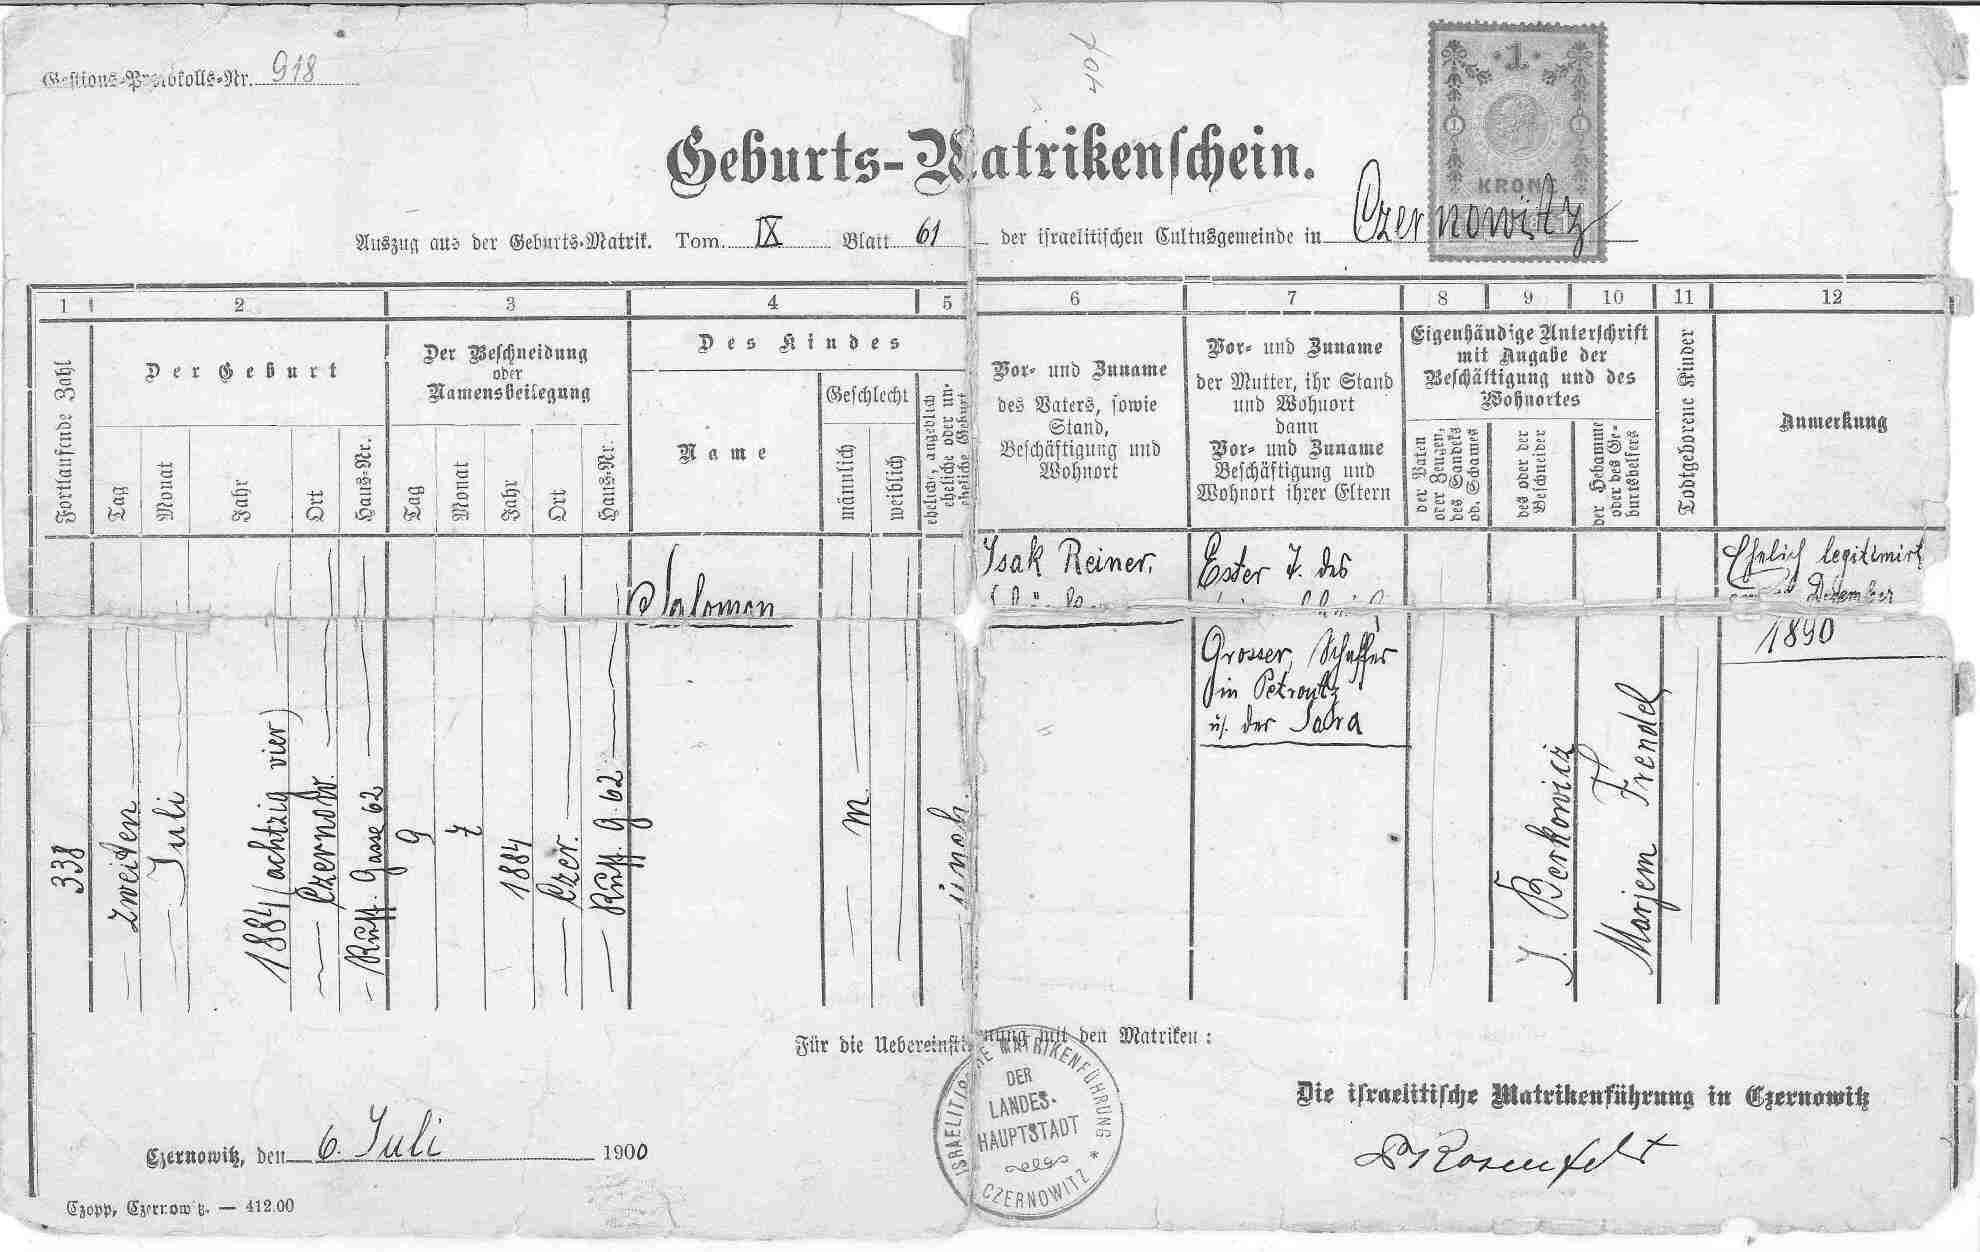 Gestions-Protokolls-Nr. 918
Geburts-Matrikenschein.
1
KRONE
1
1
Auszug aus der Geburts-Matrik. Tom. IX Blatt 61 der israelitischen Cultusgemeinde in Czernowitz
1 2 3 4 5 6 7 8 9 10 11 12
Fortlaufende Zahl
Der Geburt
Tag
Monat
Jahr
Ort
Haus-Nr.
Der Beschneidung
oder
Namensbeilegung
Tag
Monat
Jahr
Ort
Haus-Nr.
Des Kindes
Name
Geschlecht
männlich
weiblich
ehelich, angeblich
eheliche oder un-
eheliche Geburt
Vor- und Zuname
des Vaters, sowie
Stand,
Beschäftigung und
Wohnort
Vor- und Zuname
der Mutter, ihr Stand
und Wohnort
dann
Vor- und Zuname
Beschäftigung und
Wohnort ihrer Eltern
Eigenhändige Unterschrift
mit Angabe der
Beschäftigung und des
Wohnortes
der Paten
oder Zeugen,
des Sandeks
od. Schames
des oder der
Beschneider
der Hebamme
oder des Ge-
burtshelfers
Todtgeborene Kinder
Anmerkung
338
zweiten
Juli
1884 (achtzig vier)
Czernow.
Ruff. Gasse 62
9
7
1884
Czer.
Ruff. g. 62
Salomon
m
uneh.
Isak Reiner,
Ester T. des
Grosser, Schaffer
in Petroutz
u. der Sara
J. Berkowicz
Marjem Frendel
Ehelich legitimirt
Dezember
1890
Für die Uebereinstimmung mit den Matriken:
ISRAELITISCHE MATRIKENFÜHRUNG
DER
LANDES-
HAUPTSTADT
CZERNOWITZ *
Die israelitische Matrikenführung in Czernowitz
Czernowitz, den 6. Juli 1900
Rosenfeld
Czopp, Czernowitz. — 412.00